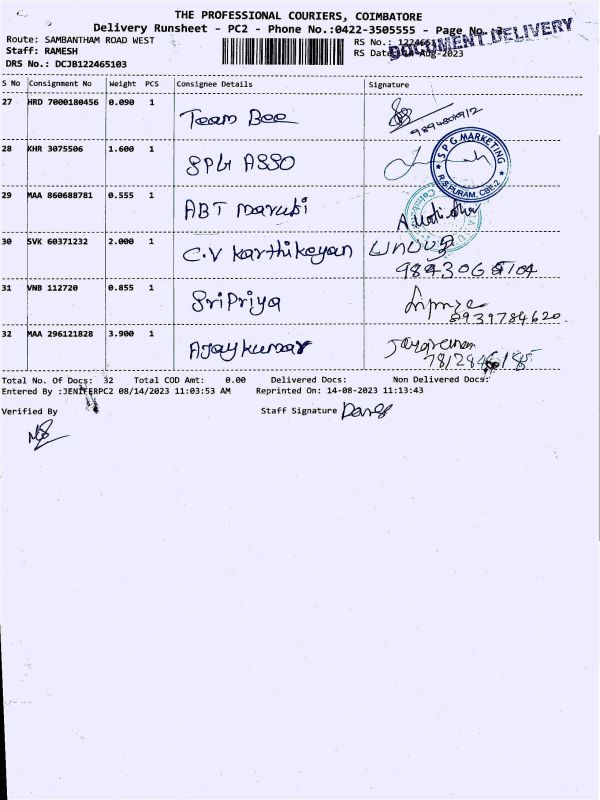 THE PROFESSIONAL COURIERS, COIMBATORE
Delivery Runsheet - PC2 - Phone No.:0422-3505555 - Page No.
DOCUMENT DELIVERY
Route: SAMBANTHAM ROAD WEST RS No.:
Staff: RAMESH RS Date Aug-2023
DRS No.: DCJB122465103
S No Consignment No Weight PCS Consignee Details Signature
27 HRD 7000180456 0.090 1 Team Bee
28 KHR 3075506 1.600 1 SPG ASSO
S P G MARKETING
R.S PURAM, CBE-2
29 MAA 860688781 0.555 1 ABT Maruti
30 SVK 60371232 2.000 1 C.V Karthikeyan
31 VNB 112720 0.855 1 SriPriya
8939784620
32 MAA 296121828 3.900 1 Ajaykumar
Total No. Of Docs: 32 Total COD Amt: 0.00 Delivered Docs: Non Delivered Docs:
Entered By :JENIFERPC2 08/14/2023 11:03:53 AM Reprinted On: 14-08-2023 11:13:43
Verified By Staff Signature